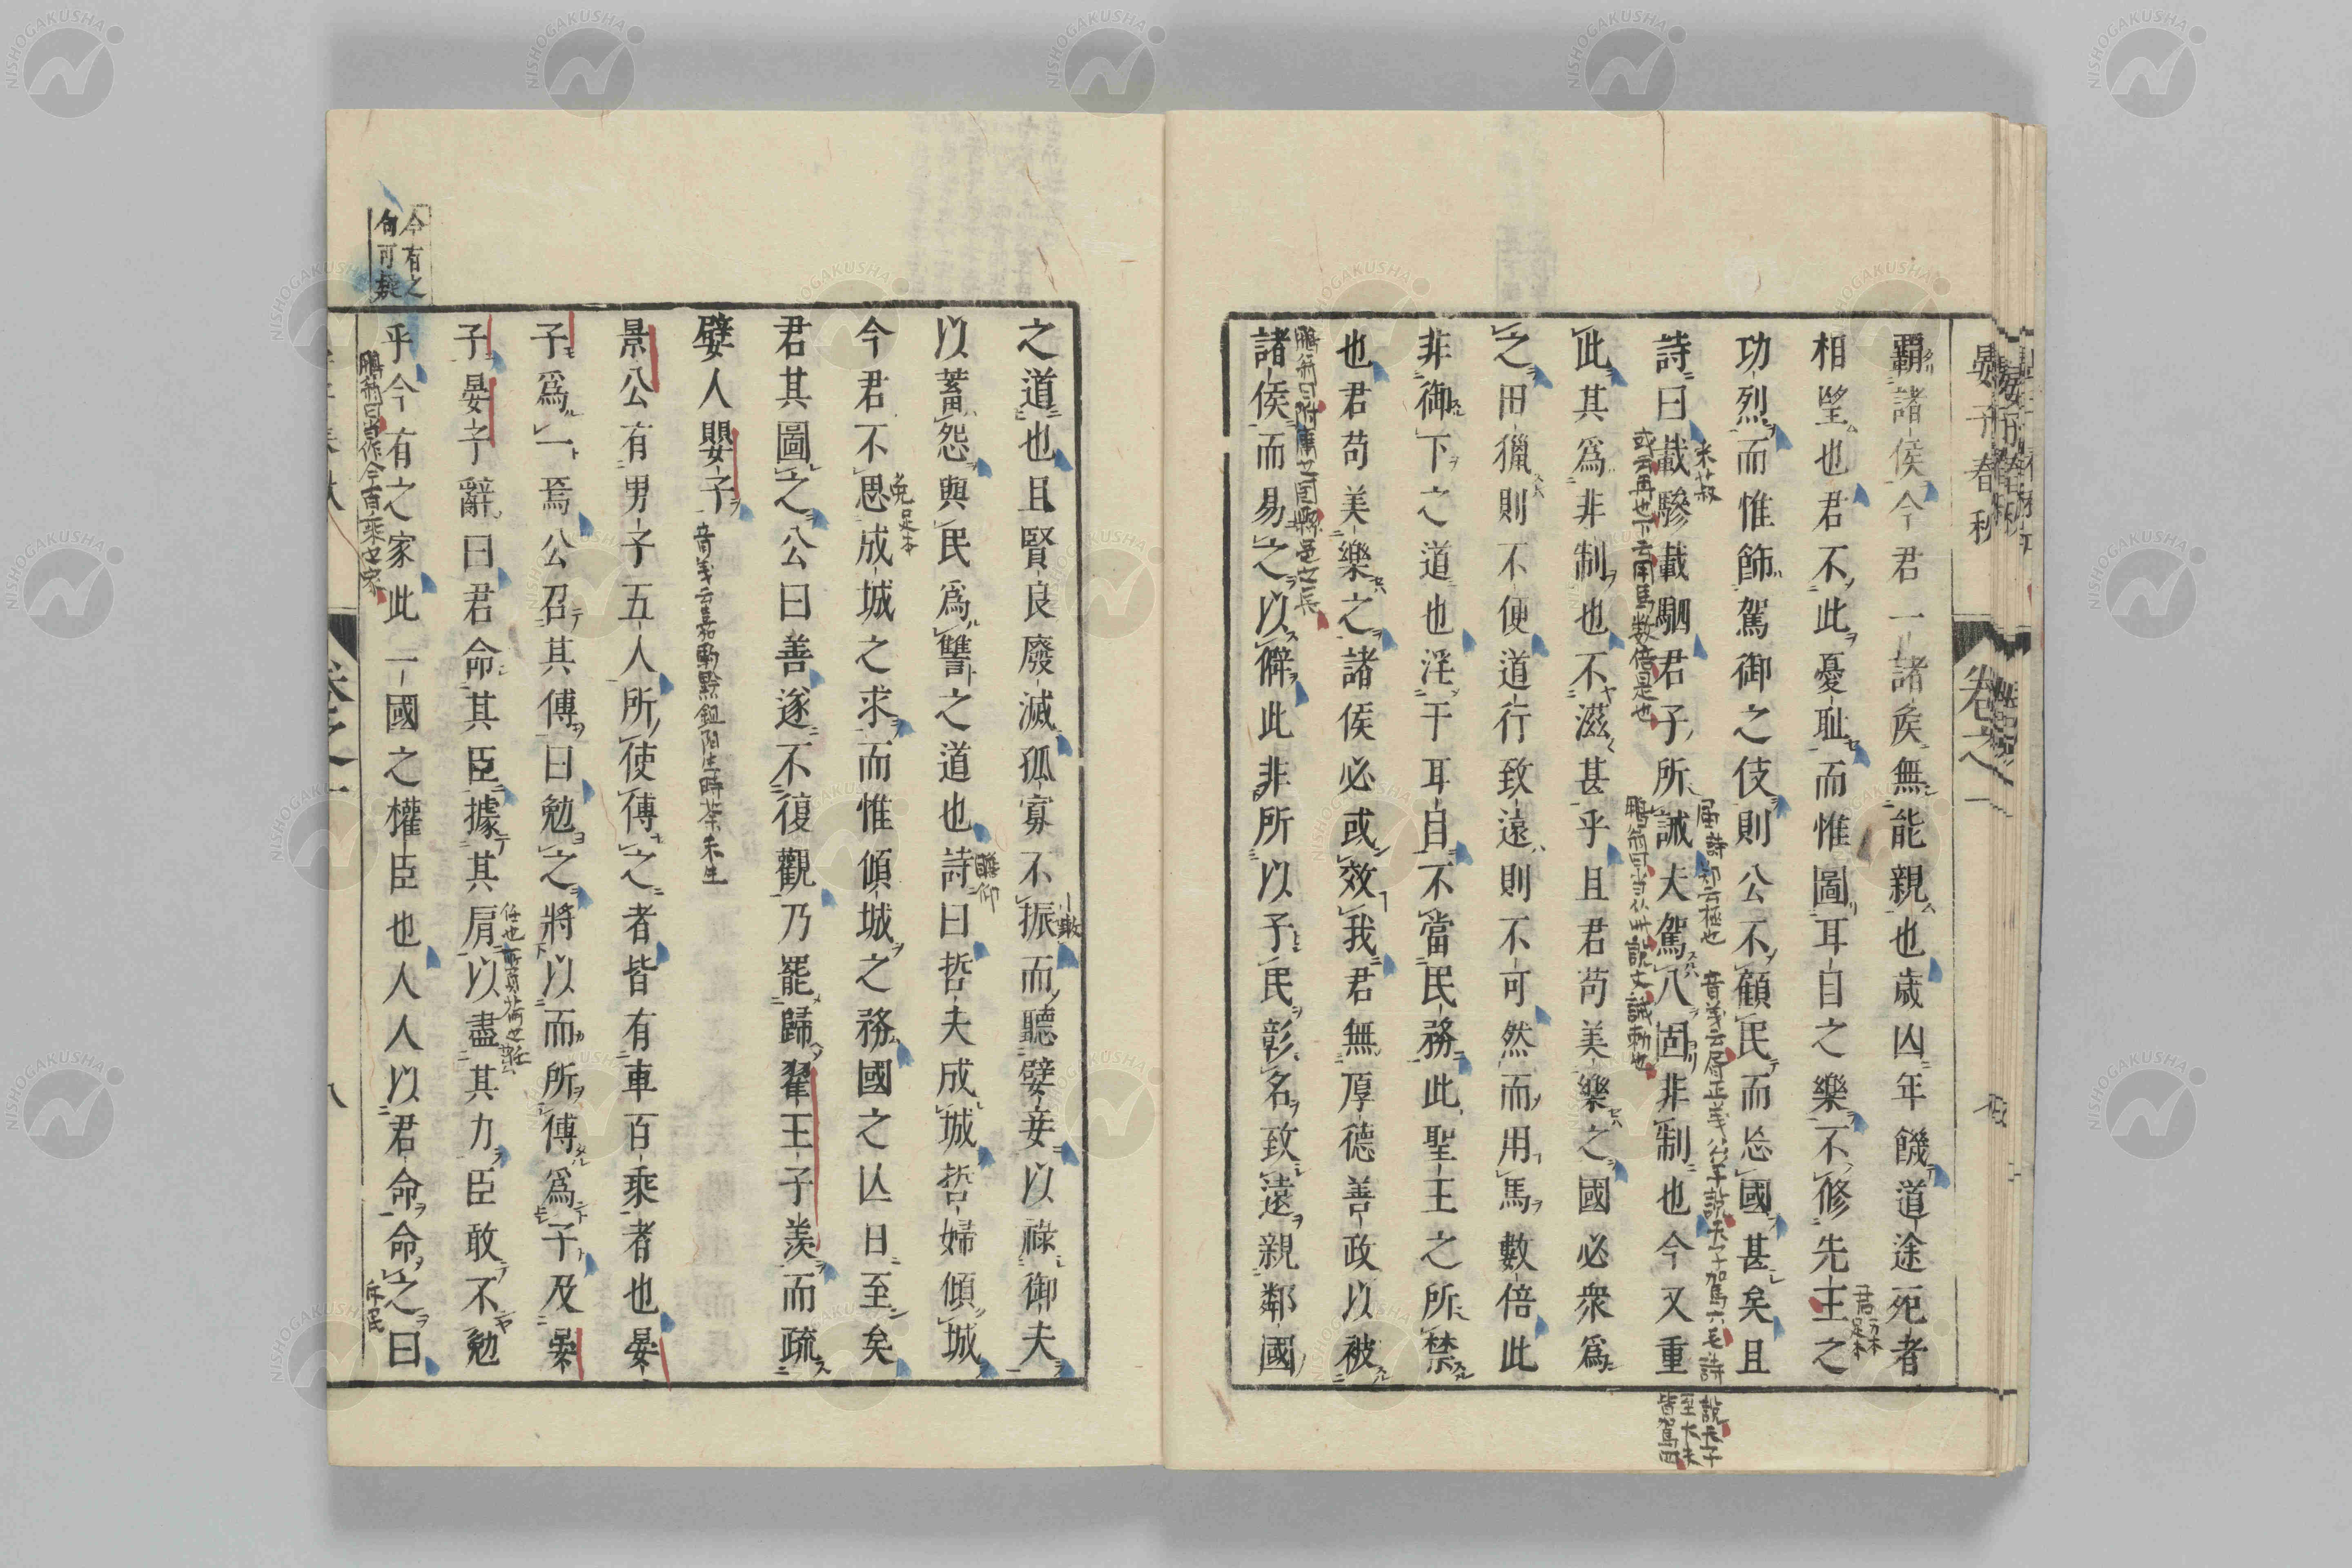 晏子春秋
卷之一
霸諸侯今君一諸矦無能親也歳凶年饑道途死者
相望也君不此憂耻而惟圖耳目之樂不修先王之
功烈而惟飾駕御之伎則公不顧民而忘國甚矣且
詩曰載驂載駟君子所誡夫駕八固非制也今又重
此其爲非制也不滋甚乎且君苟美樂之國必衆爲
之田獵則不便道行致遠則不可然而用馬數倍此
非御下之道也淫于耳目不當民務此聖王之所禁
也君苟美樂之諸侯必或效我君無厚德善政以被
諸侯而易之以僻此非所以子民彰名致遠親鄰國
之道也且賢良廢滅孤寡不振而聽嬖妾以祿御夫
以蓄怨與民爲讐之道也詩曰哲夫成城哲婦傾城
今君不思成城之求而惟傾城之務國之亾日至矣
君其圖之公曰善遂不復觀乃罷歸翟王子羨而疏
嬖人嬰子
景公有男子五人所使傅之者皆有車百乘者也晏
子爲一焉公召其傅曰勉之將以而所傅爲子及晏
子晏子辭曰君命其臣據其肩以盡其力臣敢不勉
乎今有之家此一國之權臣也人人以君命命之曰
今有之
句可疑
瞻仰
說天子
至大夫
皆駕四